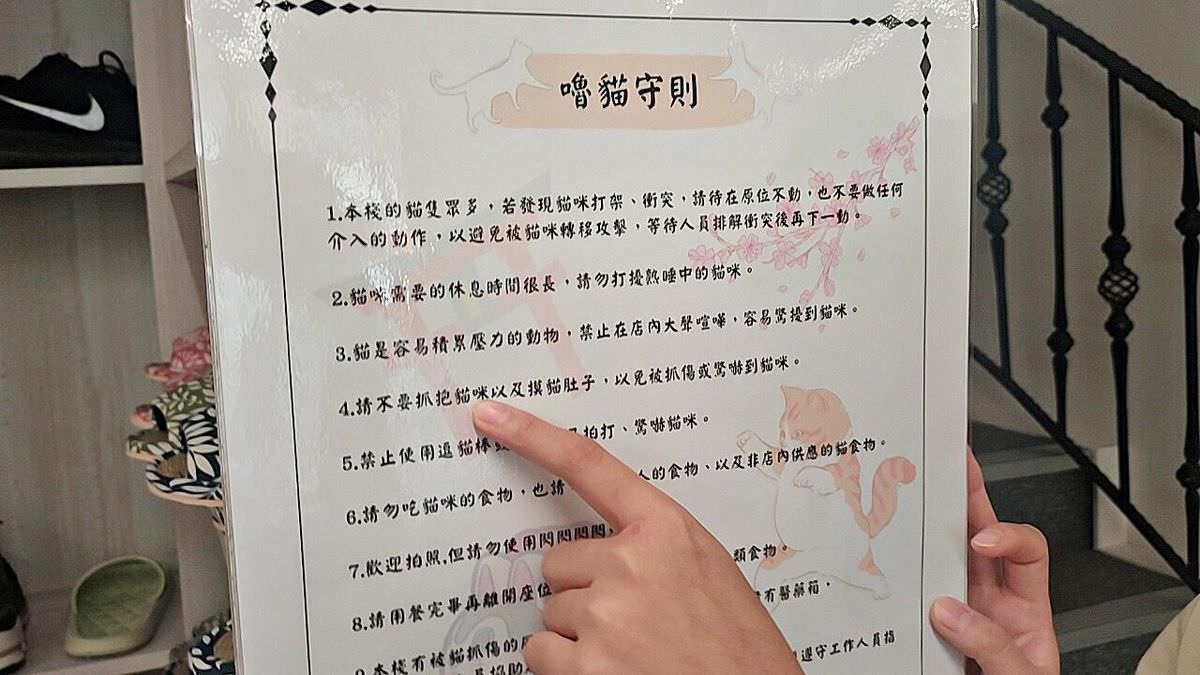 嚕貓守則
1.本棧的貓隻眾多，若發現貓咪打架、衝突，請待在原位不動，也不要做任何
介入的動作，以避免被貓咪轉移攻擊，等待人員排解衝突後再下一動。
2.貓咪需要的休息時間很長，請勿打擾熟睡中的貓咪。
3.貓是容易積累壓力的動物，禁止在店內大聲喧嘩，容易驚擾到貓咪。
4.請不要抓抱貓咪以及摸貓肚子，以免被抓傷或驚嚇到貓咪。
5.禁止使用逗貓棒 拍打、驚嚇貓咪。
6.請勿吃貓咪的食物，也請 人的食物、以及非店內供應的貓食物。
7.歡迎拍照,但請勿使用閃閃閃閃
8.請用餐完畢再離開座位 類食物。
9.本棧有被貓抓傷的 有醫藥箱，
協助 遵守工作人員指